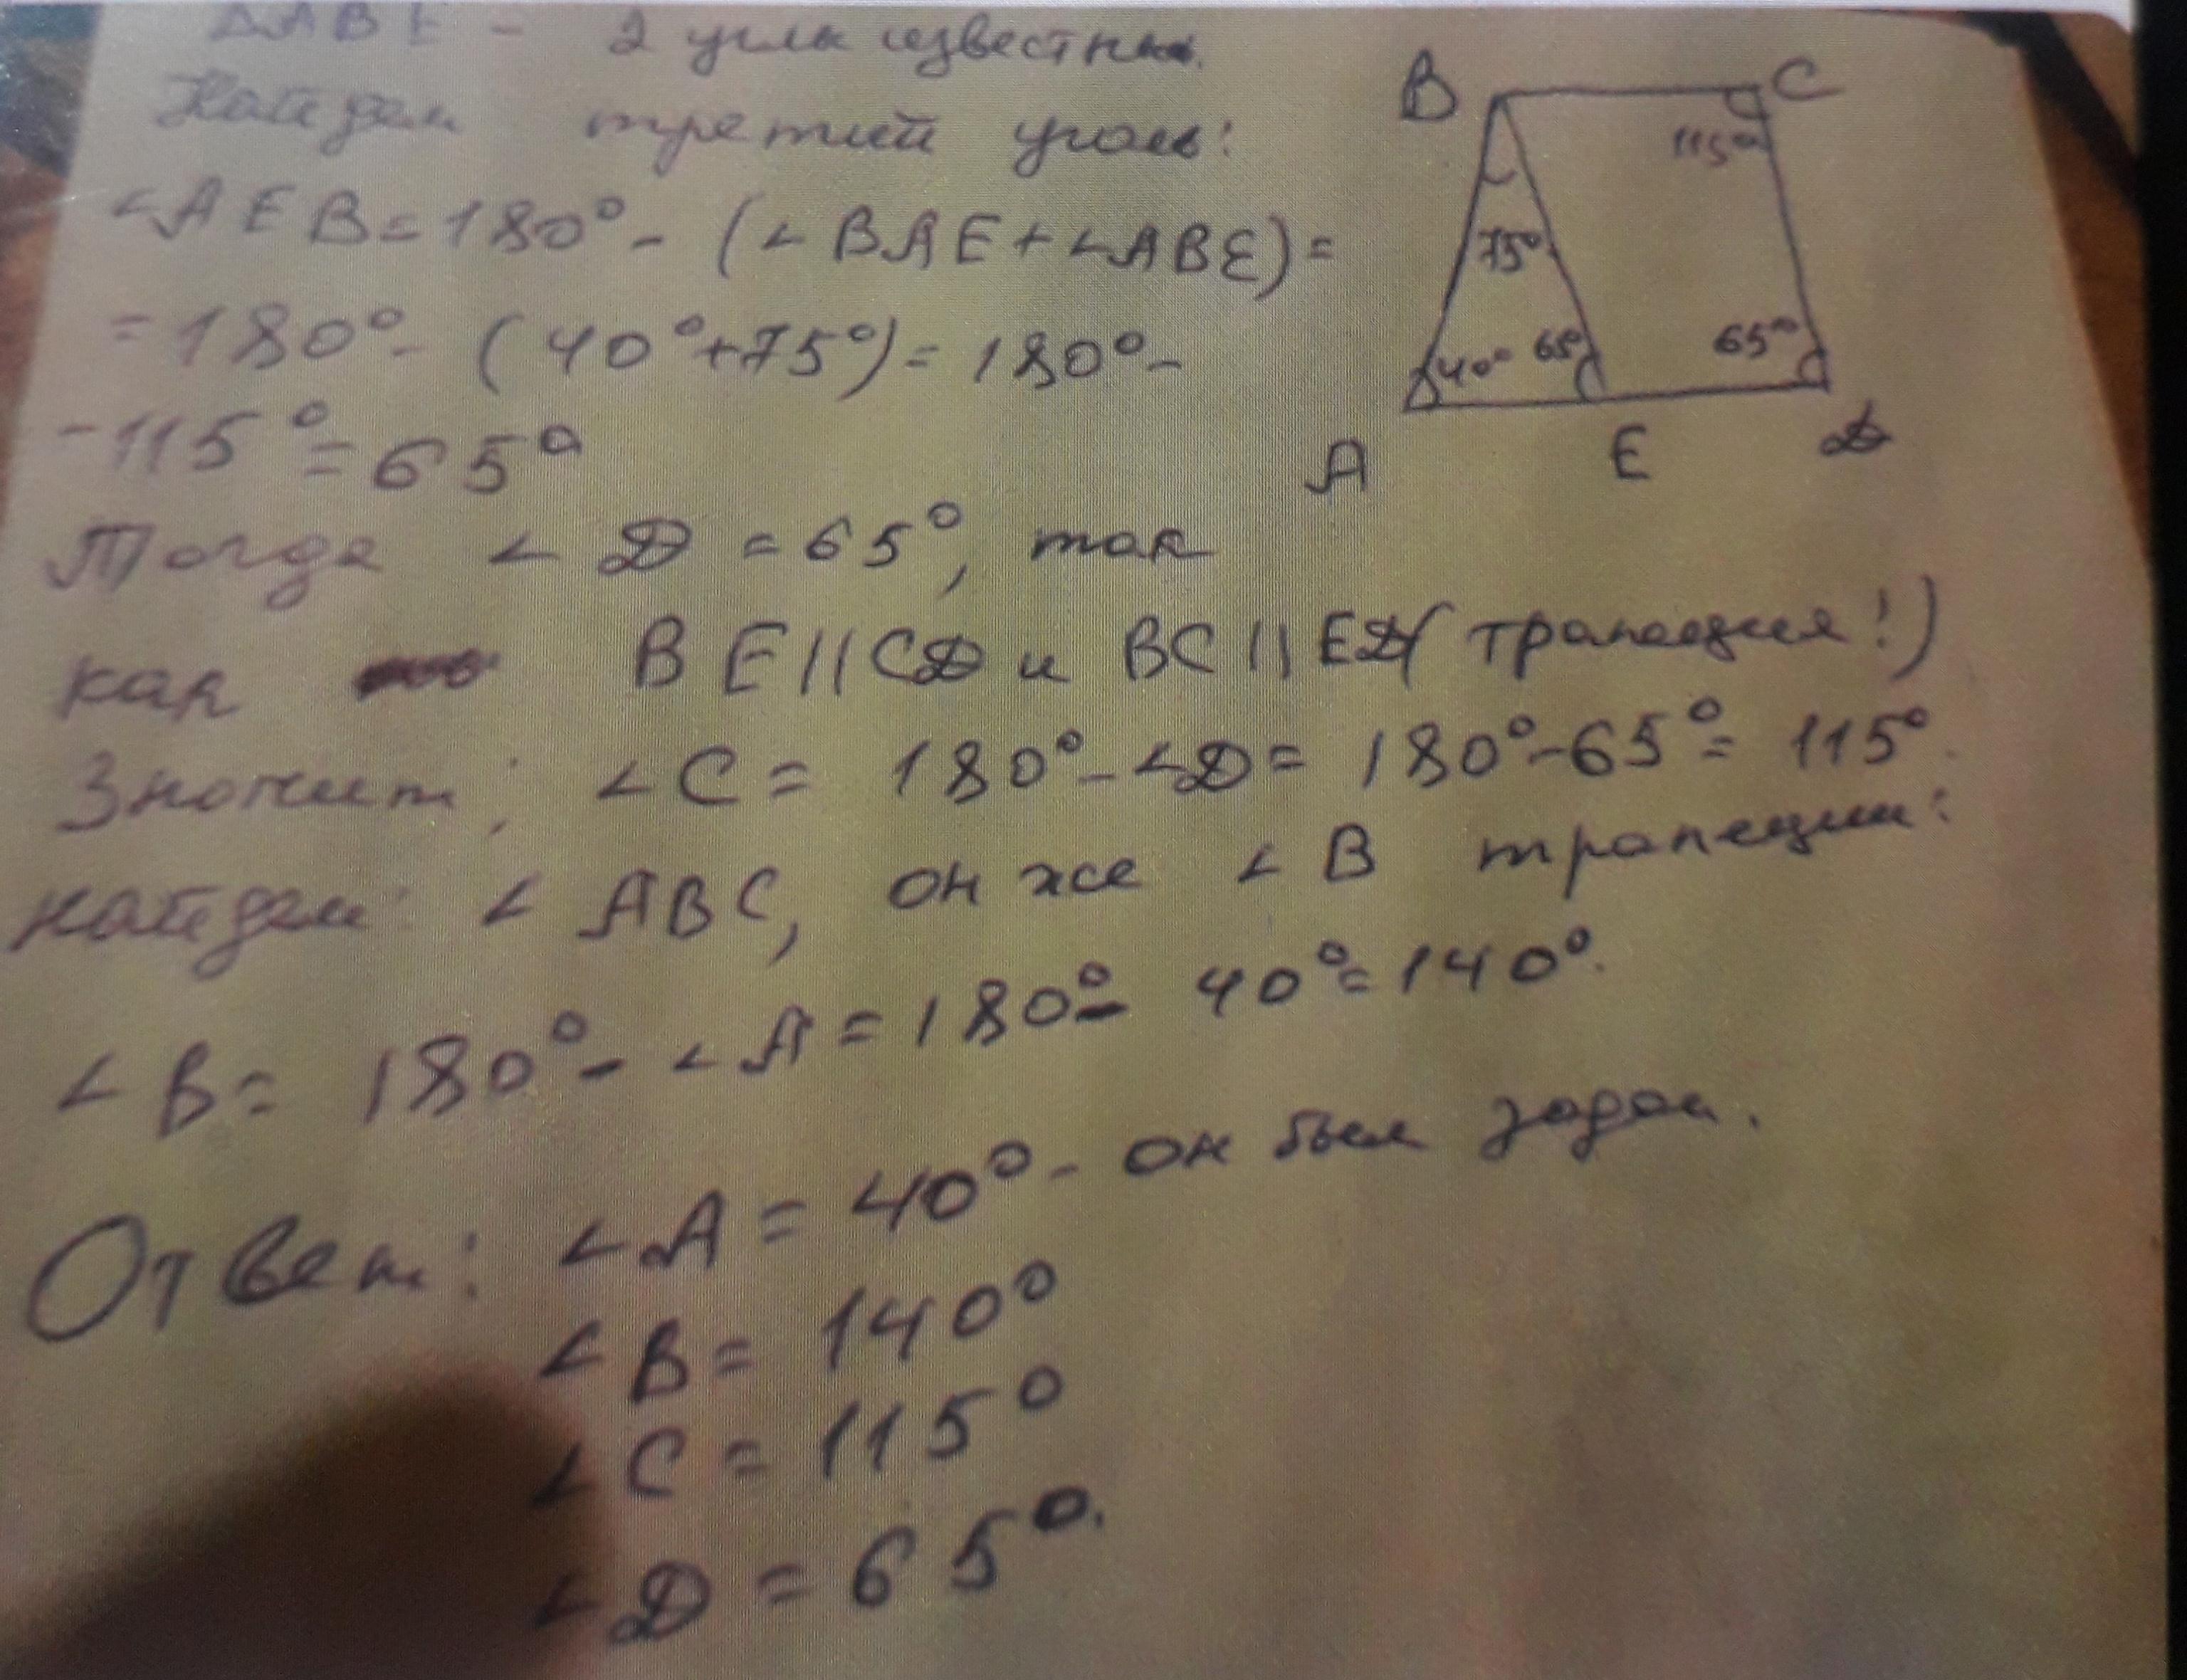 ΔABE - 2 углы известны.
Найдем третий уголь:
∠AEB=180°-(∠BAE+∠ABE)=
=180°-(40°+75°)=180°-
-115°=65°
Тогда ∠D=65°, так
как BE||CD и BC||ED (трапеция!)
Значит; ∠C=180°-∠D=180°-65°=115°.
Найдем: ∠ABC, он же ∠B трапеции:
∠B=180°-∠A=180°-40°=140°.
Ответ: ∠A=40°- он был задан.
∠B=140°
∠C=115°
∠D=65°.
B C
115°
75°
40° 65° 65°
A E D